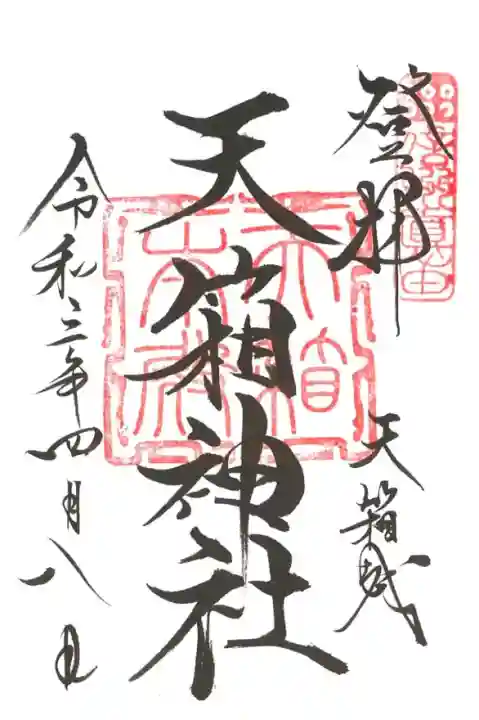 登拝
天箱
天箱神社
令和三年四月八日